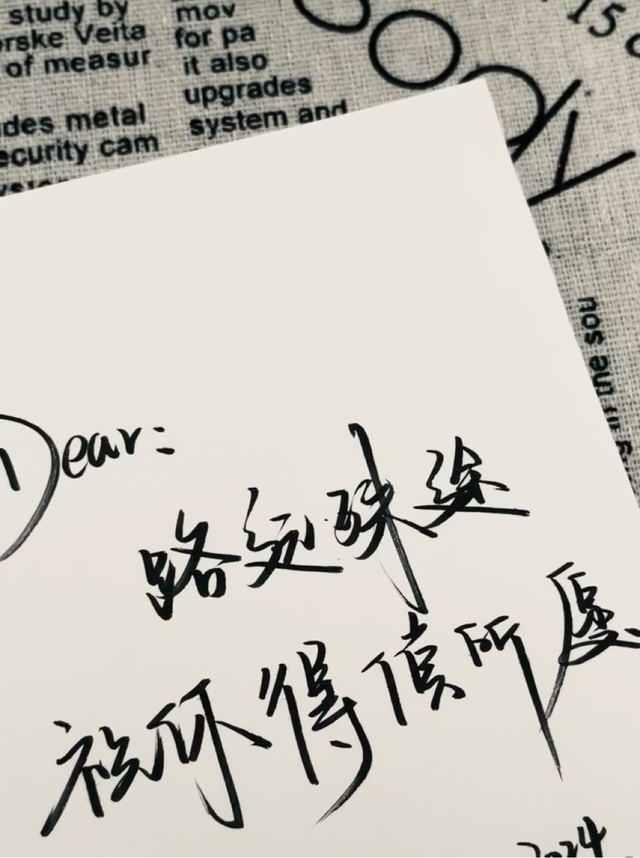 study by
rske Veita
of measur
des metal
ecurity cam
mov
for pa
it also
upgrades
system and
15
Dear:
路远殊途
祝你得偿所愿
2024